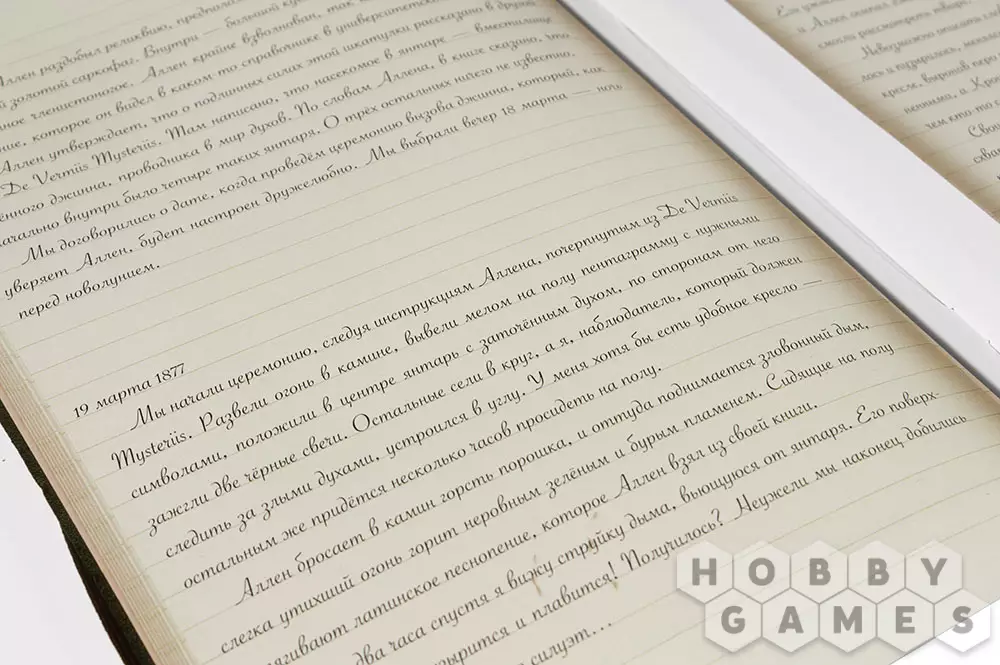 Аллен раздобыл реликвию, предпола
й золотой саркофаг. Внутри — большой ку
ное членистоногое. Аллен крайне взволнован, так
ние, которое он видел в каком-то справочнике в университетской
Аллен утверждает, что о подлинных силах этой шкатулки рассказано в другой
De Vermiis Mysteriis. Там написано, что насекомое в янтаре — вместилище
ённого джинна, проводника в мир духов. По словам Аллена, в книге сказано, что
начально внутри было четыре таких янтаря. О трёх остальных ничего не известно.
Мы договорились о дате, когда проведём церемонию вызова джинна, который, как
уверяет Аллен, будет настроен дружелюбно. Мы выбрали вечер 18 марта — ночь
перед новолунием.
19 марта 1877
Мы начали церемонию, следуя инструкциям Аллена, почерпнутым из De Vermiis
Mysteriis. Развели огонь в камине, вывели мелом на полу пентаграмму с нужными
символами, положили в центре янтарь с заточённым духом, по сторонам от него
зажгли две чёрные свечи. Остальные сели в круг, а я, наблюдатель, который должен
следить за злыми духами, устроился в углу. У меня хотя бы есть удобное кресло —
остальным же придётся несколько часов просидеть на полу.
Аллен бросает в камин горсть порошка, и оттуда поднимается зловонный дым,
слегка утихший огонь горит неровным зелёным и бурым пламенем. Сидящие на полу
ягивают латинское песнопение, которое Аллен взял из своей книги.
два часа спустя я вижу струйку дыма, вьющуюся от янтаря. Его поверх-
зырится и плавится! Получилось? Неужели мы наконец добились
силуэт...
Его уж
и Аллен
смогли рассмотреть твар
Невозможно описать
лось и пузырилось,
кресле,
венными, и Кр
чем кто-то
Сво
схва
HOBBY
GAMES